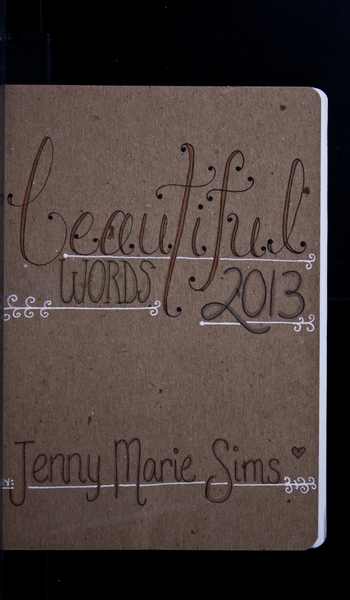 beautiful
WORDS
2013
Jenny Marie Sims